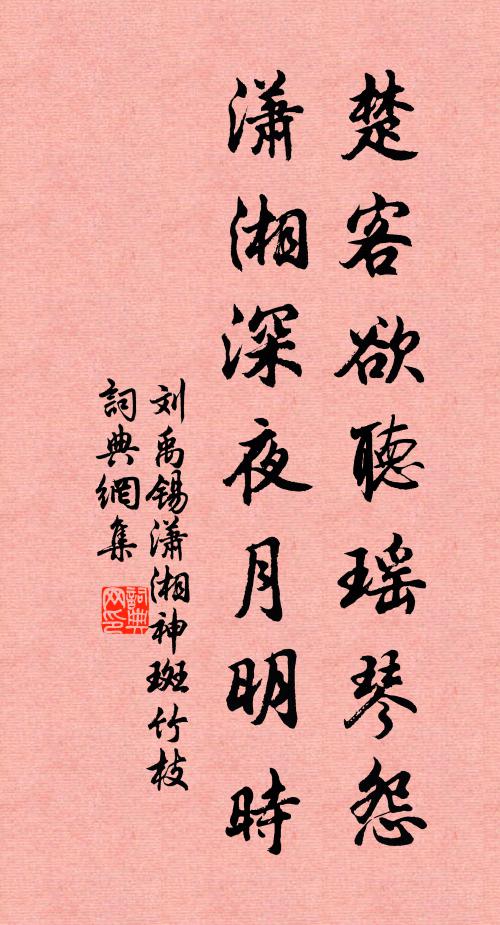 楚客欲聽瑶琴怨
瀟湘深夜月明時
刘禹锡瀟湘神斑竹枝
詞典網集
詞典
网印